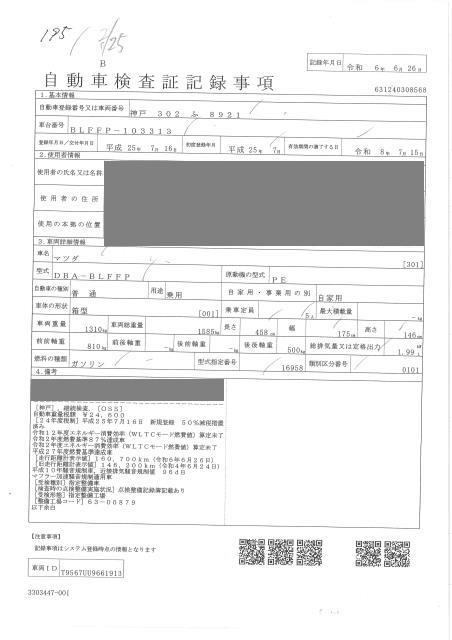 195
2/25
B
記録年月日 令和 6年 6月 26日
自動車検査証記録事項
631240308568
1. 基本情報
自動車登録番号又は車両番号 神戸 302 ふ 8921
車台番号 BLFFP-103313
登録年月日/交付年月日 平成 25年 7月 16日 初度登録年月 平成 25年 7月 有効期間の満了する日 令和 8年 7月 15日
2. 使用者情報
使用者の氏名又は名称
使用者の住所
使用の本拠の位置
3. 車両詳細情報
車名 マツダ [301]
型式 DBA-BLFFP 原動機の型式 PE
自動車の種別 普通 用途 乗用 自家用・事業用の別 自家用
車体の形状 箱型 [001] 乗車定員 5人 最大積載量 -kg
車両重量 1310kg 車両総重量 1585kg 長さ 458cm 幅 175cm 高さ 146cm
前前軸重 810kg 前後軸重 -kg 後前軸重 -kg 後後軸重 500kg 総排気量又は定格出力 1.99L
燃料の種類 ガソリン 型式指定番号 16958 類別区分番号 0101
4. 備考
[神戸], 継続検査, [OSS]
自動車重量税額 ¥24,600
[24年度税制] 平成25年7月16日 新規登録 50%減税措置
済み
令和12年度エネルギー消費効率(WLTCモード燃費値)算定未了
令和2年度燃費基準87%達成車
令和2年度エネルギー消費効率(WLTCモード燃費値)算定未了
平成27年度燃費基準達成車
[走行距離計表示値] 160,700km (令和6年6月26日)
[旧走行距離計表示値] 146,200km (令和4年6月24日)
平成10年騒音規制車, 近接排気騒音規制値 96dB
マフラー加速騒音規制適用車
[受検種別] 指定整備車
[検査時の点検整備実施状況] 点検整備記録簿記載あり
[受検形態] 指定整備工場
[整備工場コード] 63-00879
以下余白
【注意事項】
記録事項はシステム登録時点の情報となります
車両ID T9567UU9661913
3303447-001